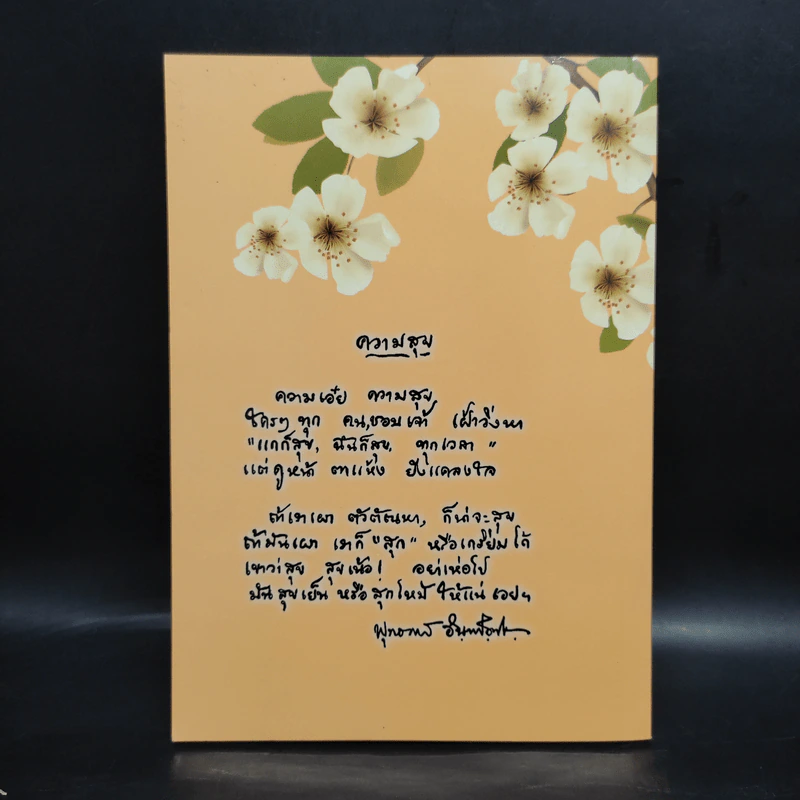 ความสุข
ความเอ๋ย ความสุข
ใครๆ ทุก คน,ชอบเจ้า เฝ้าวิ่งหา
"แกก็สุข, ฉันก็สุข, ทุกเวลา"
แต่ดูหน้า ตาแห้ง ยังแคลงใจ
ถ้าเราเผา ตัวตัณหา, ก็น่าจะสุข
ถ้ามันเผา เราก็ "สุก" หรือเกรียมได้
เขาว่าสุข สุขเน้อ! อย่าเห่อไป
มันสุขเย็น หรือสุกไหม้ ให้แน่เอยฯ
พุทธทาส อินฺทปญฺโญ